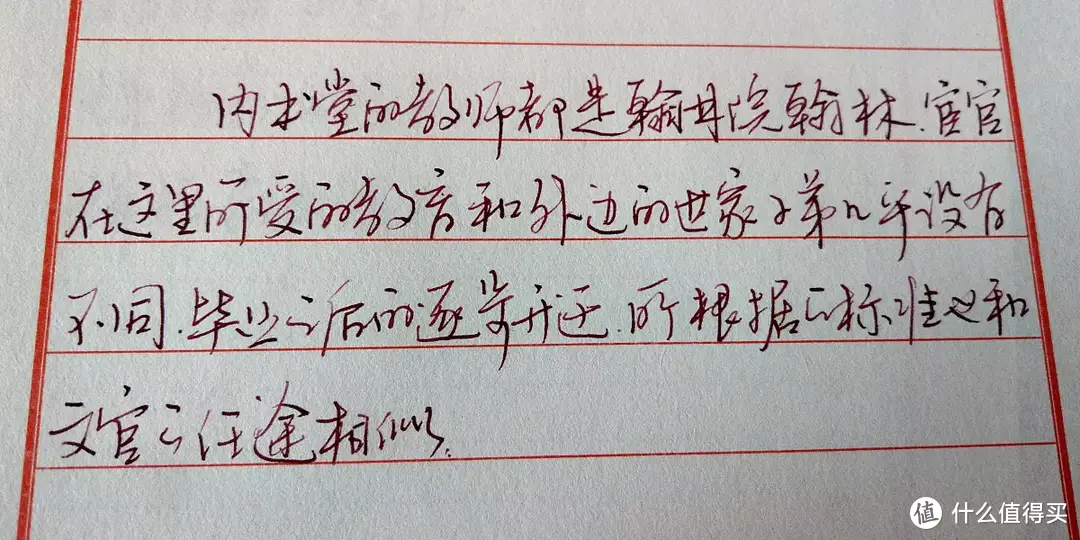 内书堂的教师都是翰林院翰林.宦官
在这里所受的教育和外边的世家子弟几乎没有
不同.毕业之后的逐步升迁.所根据的标准也和
文官之仕途相似.
值 什么值得买